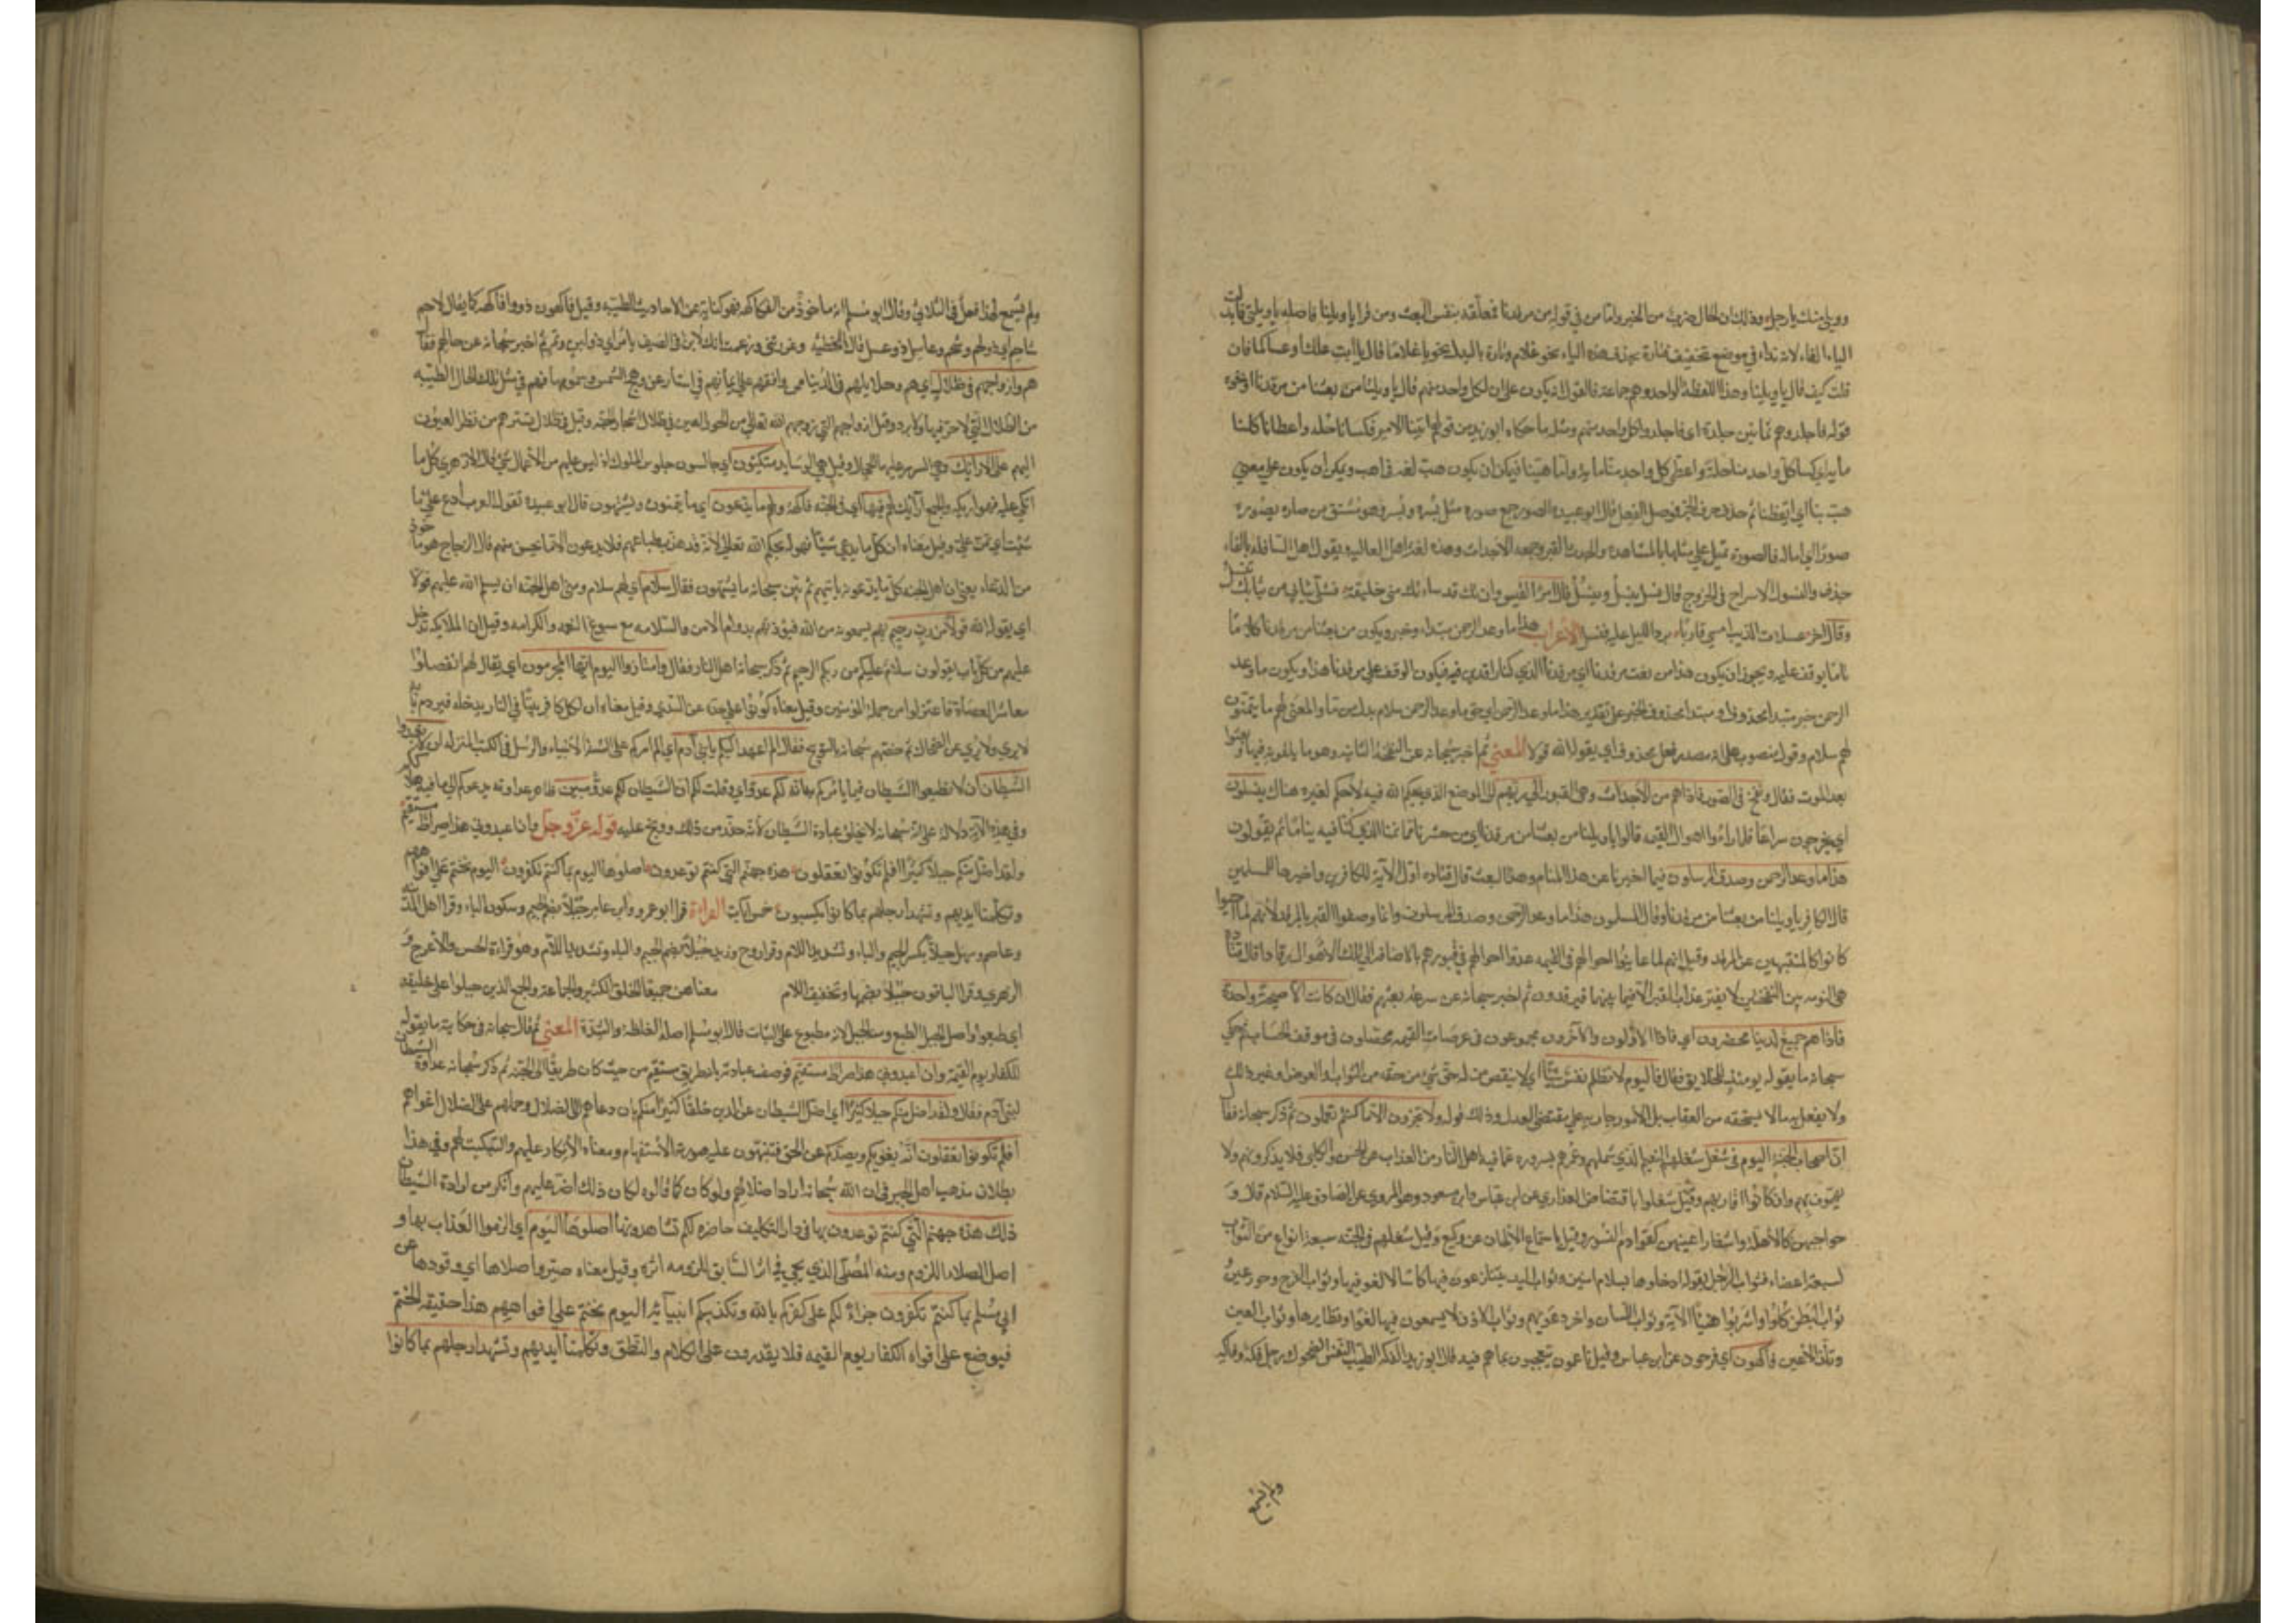 وويلي منك يا رجل وذلك ان الحال ضرب من الخبر واما من في قوله من مرقدنا فمتعلقة بنفس البعث ومن قرا يا ويلتنا فاصله يا ويلتي فابدلت
الياء الفاء لانه نداء في موضع تخفيف فتارة بحذف هذه الياء نحو غلام وتارة بالبدل نحو يا غلاما قال يا ابت علك او عساكا فان
قلت كيف قال يا ويلتا وهذا اللفظة الواحد وهم جماعة فالقول انه يكون على ان لكل واحد منهم قال يا ويلتا من بعثنا من مرقدنا ونحوه
قوله فاجلدوهم ثمانين جلدة اي فاجلدوا كل واحد منهم ومثله ما حكاه ابو زيد من قولهم اتينا الامير فكسانا كلنا حلة واعطانا كلنا
مائة اي كسا كل واحد منا حلة واعطى كل واحد منا مائة واما هبنا فيمكن ان يكون هب لغة في اهب ويمكن ان يكون على معنى
هب بنا اي ايقظنا ثم حذف حرف الجر فوصل الفعل قال ابو عبيدة الصور جمع صورة مثل بسرة وبسر فهو مشتق من صاره يصوره
صورا اي اماله فالصورة تميل الى مثلها بالمشاهدة والجدث القبر وجمعه الاجداث وهذه لغة اهل العالية ويقول اهل السافلة بالفاء
جدف والنسول الاسراع في الخروج يقال نسل ينسل وينسل قال امرؤ القيس وان تك قد ساءتك مني خليقة فسلي ثيابي من ثيابك تنسل
وقال آخر عسلان الذيب امسى قاربا برد الليل عليه فنسل الاعراب هذا ما وعد الرحمن مبتداء وخبر ويكون من بعثنا من مرقدنا كلاما
تاما يوقف عليه ويجوز ان يكون هذا من نعت مرقدنا اي مرقدنا الذي كنا راقدين فيه فيكون الوقف على مرقدنا هذا ويكون ما وعد
الرحمن خبر مبتدا محذوف او مبتدا محذوف الخبر على تقدير هذا ما وعد الرحمن اي حق ما وعد الرحمن سلام بدل من ما والمعنى لهم ما يتمنون
لهم سلام وقولا منصوب على انه مصدر فعل محذوف اي يقوله الله قولا المعنى ثم اخبر سبحانه عن النفخة الثانية وما يلقونه فيها اذا بعثوا
بعد الموت فقال ونفخ في الصور فاذا هم من الاجداث وهي القبور الى ربهم اي الى الموضع الذي يحكم الله فيه لا حكم لغيره هناك ينسلون
اي يخرجون سراعا فلما راوا اهوال القيمة قالوا يا ويلنا من بعثنا من مرقدنا اي من حشرنا من منامنا الذي كنا فيه نياما ثم يقولون
هذا ما وعد الرحمن وصدق المرسلون فيما اخبرونا عن هذا المقام وهذا البعث قال قتادة اول الآية للكافرين وآخرها للمسلمين
قال الكافر يا ويلنا من بعثنا من مرقدنا وقال المسلمون هذا ما وعد الرحمن وصدق المرسلون وانما وصفوا القبر بالمرقد لانهم لما احيوا
كانوا كالمنتبهين عن الرقدة وقيل انهم لما عاينوا احوالهم في القيمة عدوا احوالهم في قبورهم بالاضافة الى تلك الاهوال رقادا قال قتادة
هي النومة بين النفختين لا يفتر عذاب القبر الا فيما بينهما فيرقدون ثم اخبر سبحانه عن سرعة بعثهم فقال ان كانت الا صيحة واحدة
فاذا هم جميع لدينا محضرون اي فاذا الاولون والآخرون مجموعون في عرصات القيمة محصلون في موقف الحساب ثم حكى
سبحانه ما يقوله يومئذ للخلايق فقال فاليوم لا تظلم نفس شيئا اي لا ينقص من له حق شيء من حقه من الثواب او العوض او غير ذلك
ولا يفعل به ما لا يستحقه من العقاب بل الامور جارية على مقتضى العدل وذلك قوله ولا تجزون الا ما كنتم تعملون ثم ذكر سبحانه فقال
ان اصحاب الجنة اليوم في شغل شغلهم النعيم الذي شملهم وغمرهم بسروره عما فيه اهل النار من العذاب عن الحسن والكلبي فلا يذكرونهم ولا
يهتمون بهم وان كانوا اقاربهم وقيل شغلوا بافتضاض العذاري عن ابن عباس وابن مسعود وهو المروي عن الصادق عليه السلام قال و
حواجبهن كالاهلة واشفار اعينهن كقوادم النسور وقيل باستماع الالحان عن وكيع وقيل شغلهم في الجنة سبعة انواع من الثواب
لسبعة اعضاء فثواب الرجل بقوله ادخلوها بسلام آمنين وثواب اليد يتنازعون فيها كاسا لا لغو فيها وثواب الفرج وحور عين
وثواب البطن كلوا واشربوا هنيئا الآية وثواب اللسان وآخر دعويهم وثواب الاذن لا يسمعون فيها لغوا ونظايرها وثواب العين
وتلذ الاعين فاكهون اي فرحون عن ابن عباس وقيل ناعون معجبون بما هم فيه قال ابو زيد الفكه الطيب النفس الضحوك ورجل فكه وفاكه
ولم يسمع
ولم يسمع لهذا فعل في الثلاثي وقال ابو مسلم انه ماخوذ من الفكاهة فهو كناية عن الاحاديث الطيبة وقيل فاكهون ذووا فاكهة كما يقال لاحم
شاحم اي ذو لحم وشحم وعاسل ذو عسل قال الحطيئة وغررتني وزعمت انك لابن في الصيف تامر اي ذو لبن وتمر ثم اخبر سبحانه عن حالهم فقال
هم وازواجهم في ظلال اي هم وحلايلهم في الدنيا ممن وافقهم على ايمانهم في استار عن وهج الشمس وسمومها فهم في مثل تلك الحال الطيبة
من الظلال التي لا حر فيها ولا برد وقيل ازواجهم التي زوجهم الله تعالى من الحور العين في ظلال اشجار الجنة وقيل في ظلال تسترهم من نظر العيون
اليهم على الارائك وهي السرر عليها الحجال وقيل هي الوسايد متكئون اي جالسون جلوس الملوك اذ ليس عليهم من الاعمال شيء قال الازهري كل ما
اتكي عليه فهو اريكة والجمع ارائك لهم فيها اي في الجنة فاكهة ولهم ما يدعون اي ما يتمنون ويشتهون قال ابو عبيدة تقول العرب ادع علي ما
شئت اي تمن علي وقيل معناه ان كل ما يدعي شيئا فهو له بحكم الله تعالى لانه قد هذب طباعهم فلا يدعون الا ما يحسن منهم قال الزجاج هو ماخوذ
من الدعاء يعني ان اهل الجنة كل ما يدعونه ياتيهم ثم بين سبحانه ما يشتهون فقال سلام اي لهم سلام ومنى اهل الجنة ان يسلم الله عليهم قولا
اي يقوله الله قولا من رب رحيم بهم يسمعونه من الله فيؤذنهم بدوام الامن والسلامة مع سبوغ النعمة والكرامة وقيل ان الملايكة تدخل
عليهم من كل باب يقولون سلام عليكم من ربكم الرحيم ثم ذكر سبحانه اهل النار فقال وامتازوا اليوم ايها المجرمون اي يقال لهم انفصلوا
معاشر العصاة فاعتزلوا من جملة المؤمنين وقيل معناه كونوا على حدة عن السدي وقيل معناه ان لكل كافر بيتا في النار يدخله فيردم بابه
لا يري ولا يري عن الضحاك ثم خصهم سبحانه بالتوبيخ فقال الم اعهد اليكم يا بني آدم اي الم امركم على السنة الانبياء والرسل في الكتب المنزلة ان لا تعبدوا
الشيطان ان لا تطيعوا الشيطان فيما يامركم به انه لكم عدو اي وقلت لكم ان الشيطان لكم عدو مبين ظاهر عداوته يدعوكم الى ما فيه هلاككم
وفي هذه الآية دلالة على انه سبحانه لا يخلق عبادة الشيطان لانه حذر من ذلك ووبخ عليه قوله عز وجل وان اعبدوني هذا صراط مستقيم
ولقد اضل منكم جبلا كثيرا افلم تكونوا تعقلون هذه جهنم التي كنتم توعدون اصلوها اليوم بما كنتم تكفرون اليوم نختم على افواههم
وتكلمنا ايديهم وتشهد ارجلهم بما كانوا يكسبون خمس آيات القراءة قرا ابو عمرو وابن عامر جبلا بضم الجيم وسكون الباء وقرا اهل المدينة
وعاصم وسهل جبلا بكسر الجيم والباء وتشديد اللام وقرا روح وزيد جبلا بضم الجيم والباء وتشديد اللام وهو قراءة الحسن والاعرج و
الزهري وقرا الباقون جبلا بضمها وتخفيف اللام معناهن جميعا الخلق الكثير والجماعة والجمع الذين جبلوا على خليقة
اي طبعوا واصل الجبل الطبع ومنه الجبل لانه مطبوع على الثبات قال ابو مسلم اصله الغلظة والشدة المعنى ثم قال سبحانه في حكاية ما يقوله
للكفار يوم القيمة وان اعبدوني هذا صراط مستقيم فوصف عبادته بانه طريق مستقيم من حيث كان طريقا الى الجنة ثم ذكر سبحانه عداوة الشيطان
لبني آدم فقال ولقد اضل منكم جبلا كثيرا اي اضل الشيطان عن الدين خلقا كثيرا منكم بان دعاهم الى الضلال وحملهم على الضلال اغواهم
افلم تكونوا تعقلون انه يغويكم ويصدكم عن الحق فتنبهون عليه صورته الاستفهام ومعناه الانكار عليهم والتبكيت لهم وفي هذا
بطلان مذهب اهل الجبر في ان الله سبحانه اراد اضلالهم ولو كان كما قالوه لكان ذلك اضر عليهم وانكر من ارادة الشيطان
ذلك هذه جهنم التي كنتم توعدون بها في دار التكليف حاضرة لكم تشاهدونها اصلوها اليوم اي الزموا العذاب بها و
اصل الصلاء اللزوم ومنه المصلي الذي يجي في اثر السابق للزومه اثره وقيل معناه صيروا صلاها اي وقودها عن
ابي مسلم بما كنتم تكفرون جزاء لكم على كفركم بالله وتكذيبكم انبيائه اليوم نختم على افواههم هذا حقيقة الختم
فيوضع على افواه الكفار يوم القيمة فلا يقدرون على الكلام والنطق وتكلمنا ايديهم وتشهد ارجلهم بما كانوا